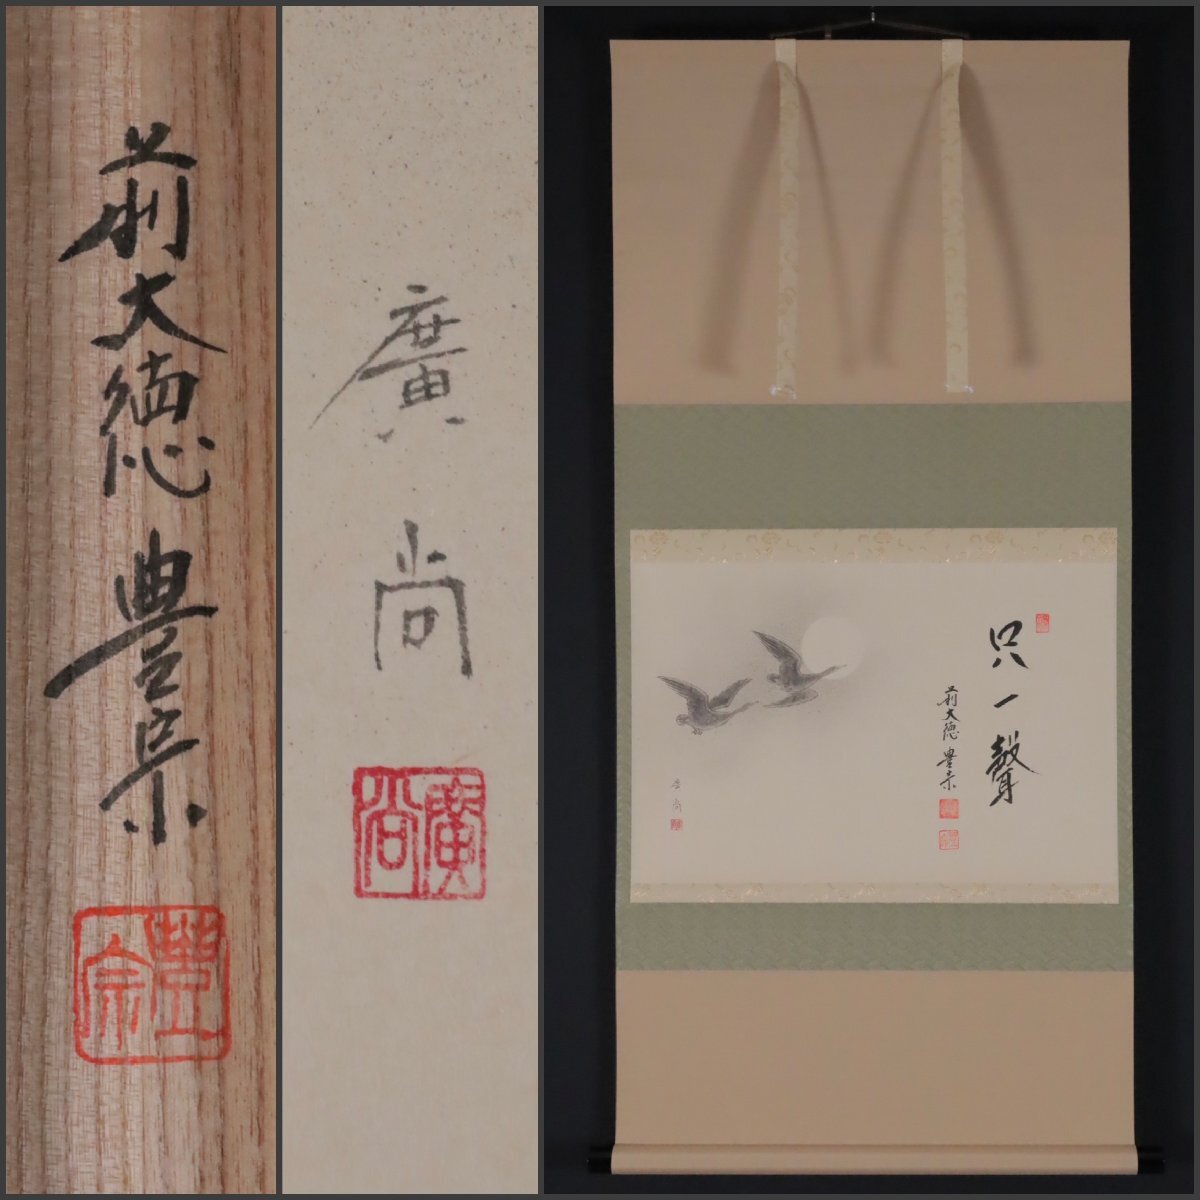 前大徳 豊宗
豊宗
廣尚
廣尚
只一聲
前大徳 豊宗
廣尚